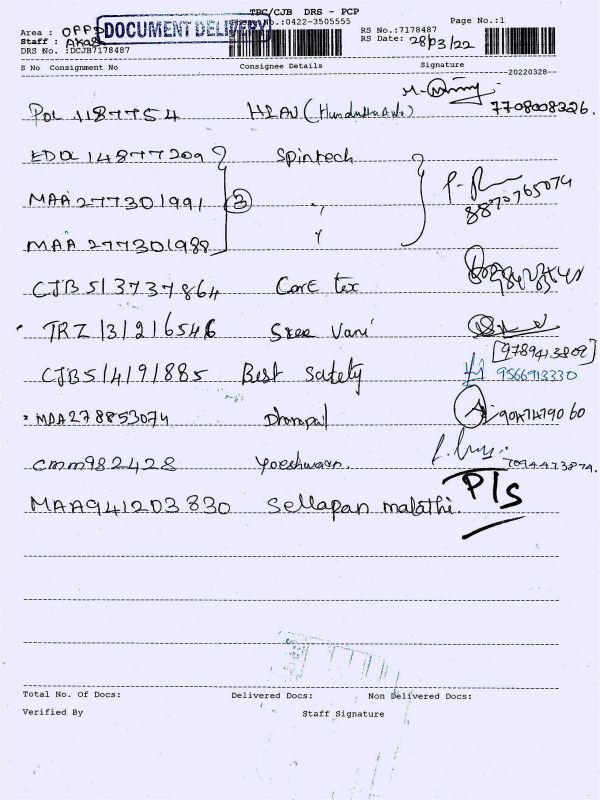 TPC/CJB DRS - PCP
DOCUMENT DELIVERY
No.:0422-3505555
Page No.:1
Area : OPP
Staff : Akas
DRS No. :DCJB7178487
RS No.:7178487
RS Date: 28/03/22
S No Consignment No Consignee Details Signature
20220328
POL 1187754 7708008326.
EDOL 14877209 Spintech
MAA 277301991 3 " 8870765074
MAA 277301988 "
CJB 513737864 Care tex
TRZ 131216546 Sree Vani
[9789413802]
CJB514191885 Best Safety 9566913330
MAA278853074 Dhanapal
CMM982428 Yoeshwaran.
MAA941203830 Sellapan malathi. P/S
Total No. Of Docs: Delivered Docs: Non Delivered Docs:
Verified By Staff Signature